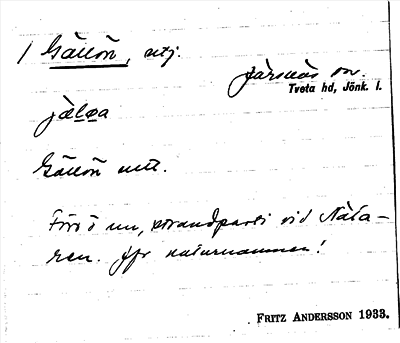 / Gällön, utj.
Järsnäs sn.
Tveta hd, Jönk. l.
jälöa
Gällön utt.
Förr ö nu, strandparti vid Näta-
ren. Jfr naturnamnen!
FRITZ ANDERSSON 1933.